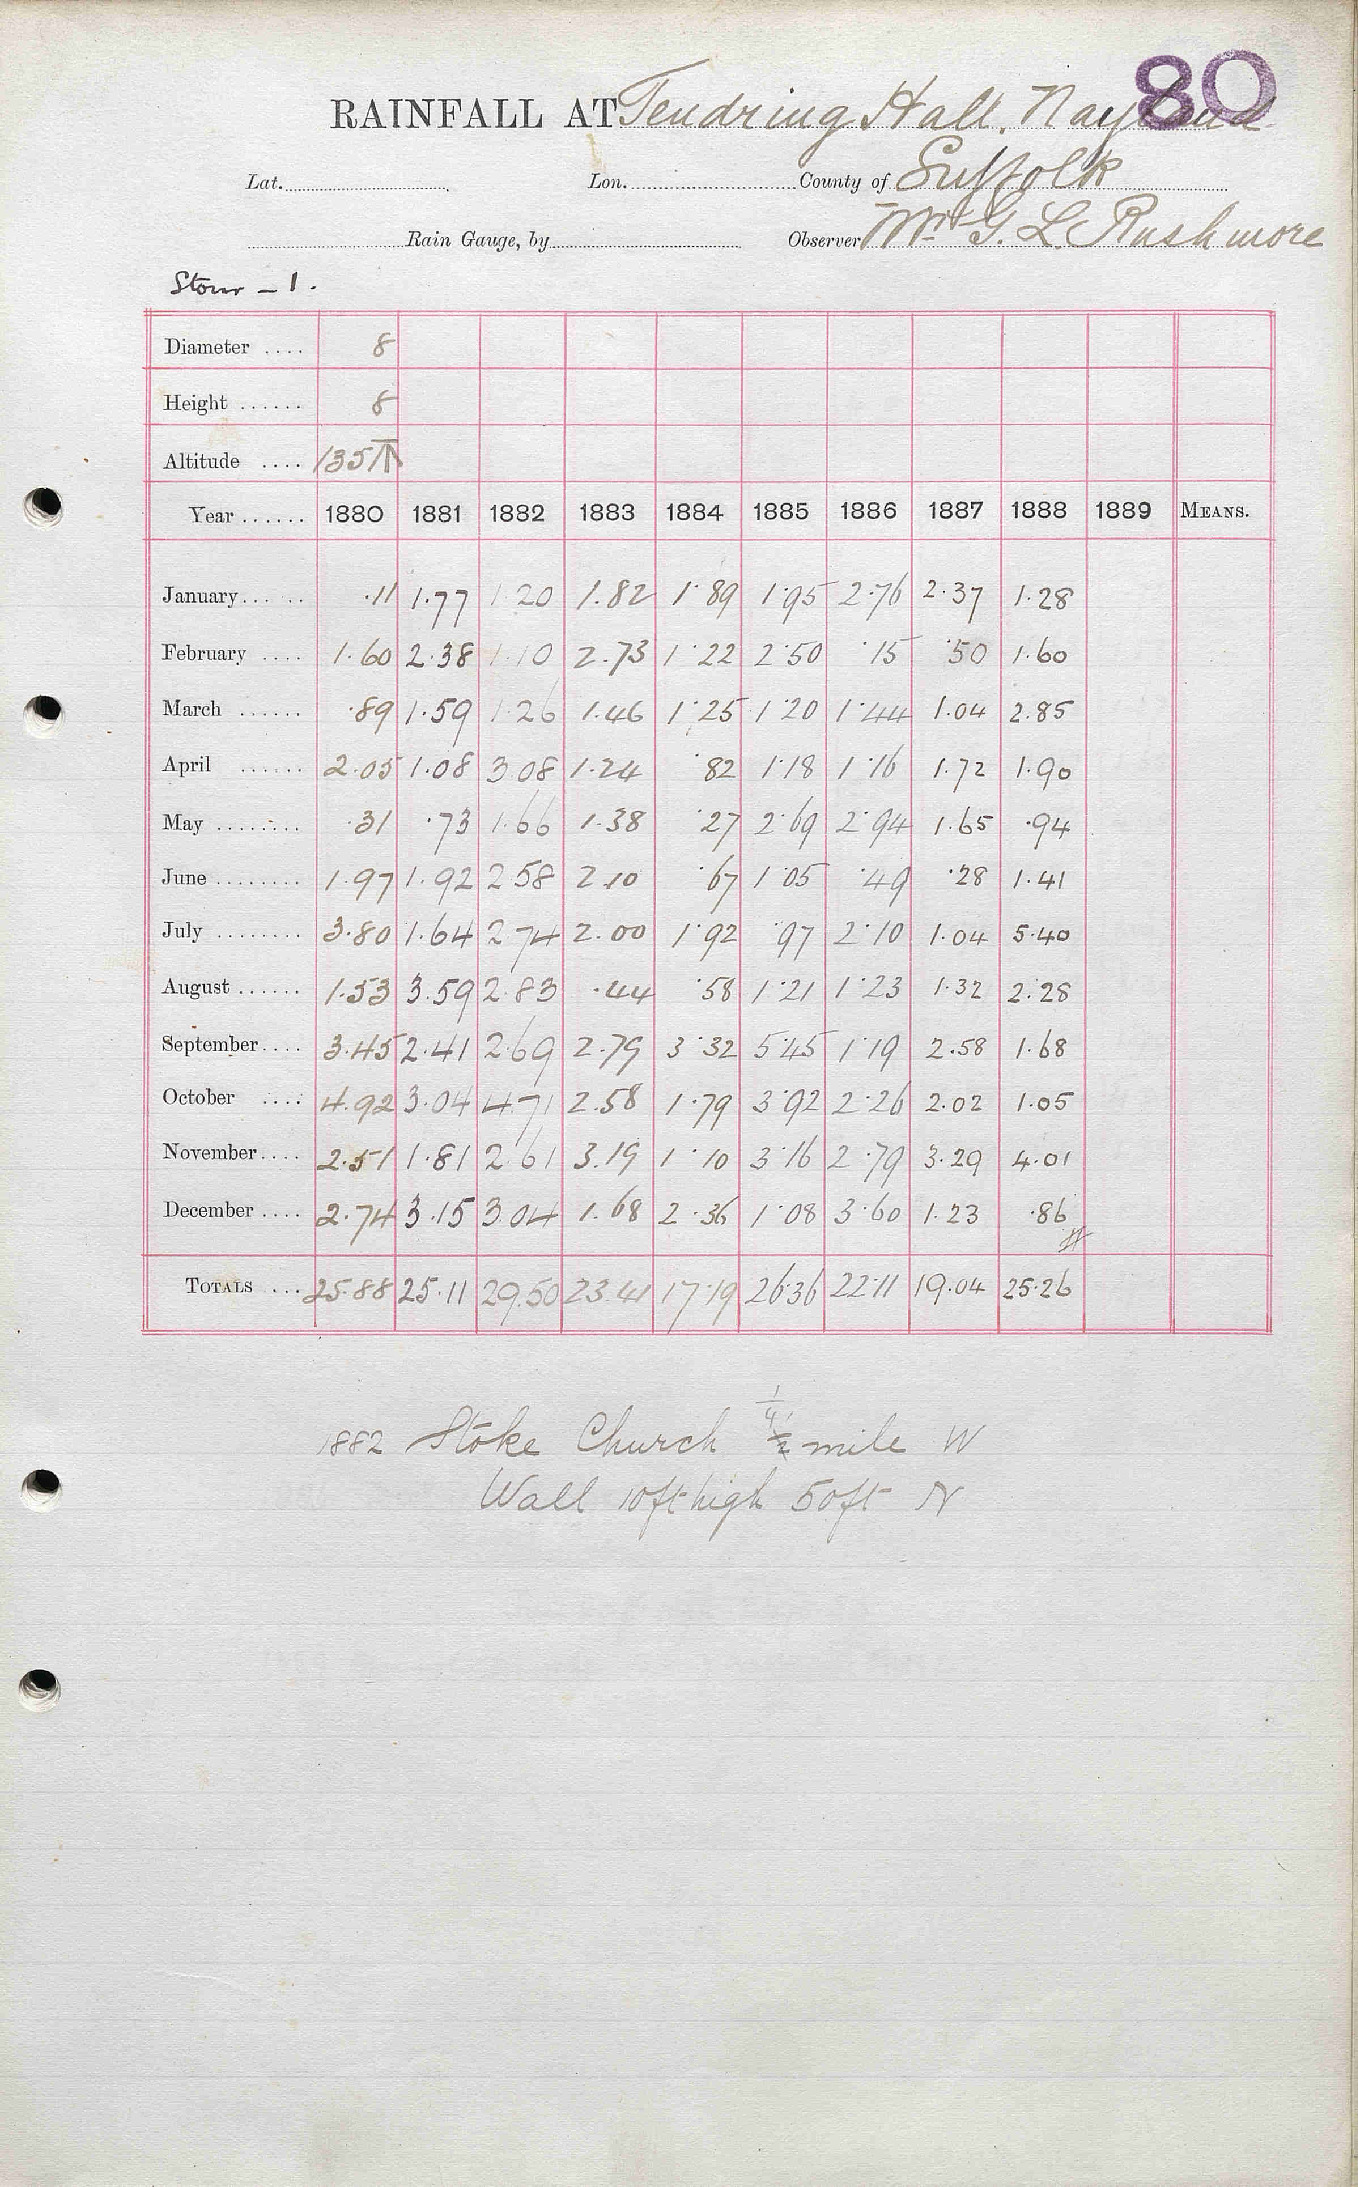 80
RAINFALL AT Tendring Hall, Nayland
Lat. Lon. County of Suffolk
Rain Gauge, by Observer Mr G. L. Rushmore
Stour - 1.
Diameter .... 8
Height ...... 8
Altitude .... 135 T
Year ...... 1880 1881 1882 1883 1884 1885 1886 1887 1888 1889 MEANS.
January ...... .11 1.77 1.20 1.82 1.89 1.95 2.76 2.37 1.28
February .... 1.60 2.38 1.10 2.73 1.22 2.50 .15 .50 1.60
March ...... .89 1.59 1.26 1.46 1.25 1.20 1.44 1.04 2.85
April ...... 2.05 1.08 3.08 1.24 .82 1.18 1.16 1.72 1.90
May ........ .31 .73 1.66 1.38 .27 2.69 2.94 1.65 .94
June ........ 1.97 1.92 2.58 2.10 .67 1.05 .49 .28 1.41
July ........ 3.80 1.64 2.74 2.00 1.92 .97 2.10 1.04 5.40
August ...... 1.53 3.59 2.83 .44 .58 1.21 1.23 1.32 2.28
September .... 3.45 2.41 2.69 2.79 3.32 5.45 1.19 2.58 1.68
October .... 4.92 3.04 4.71 2.58 1.79 3.92 2.26 2.02 1.05
November .... 2.51 1.81 2.61 3.19 1.10 3.16 2.79 3.29 4.01
December .... 2.74 3.15 3.04 1.68 2.36 1.08 3.60 1.23 .86
TOTALS ... 25.88 25.11 29.50 23.41 17.19 26.36 22.11 19.04 25.26
1882 Stoke Church 1/4 mile W
Wall 10ft high 50ft N